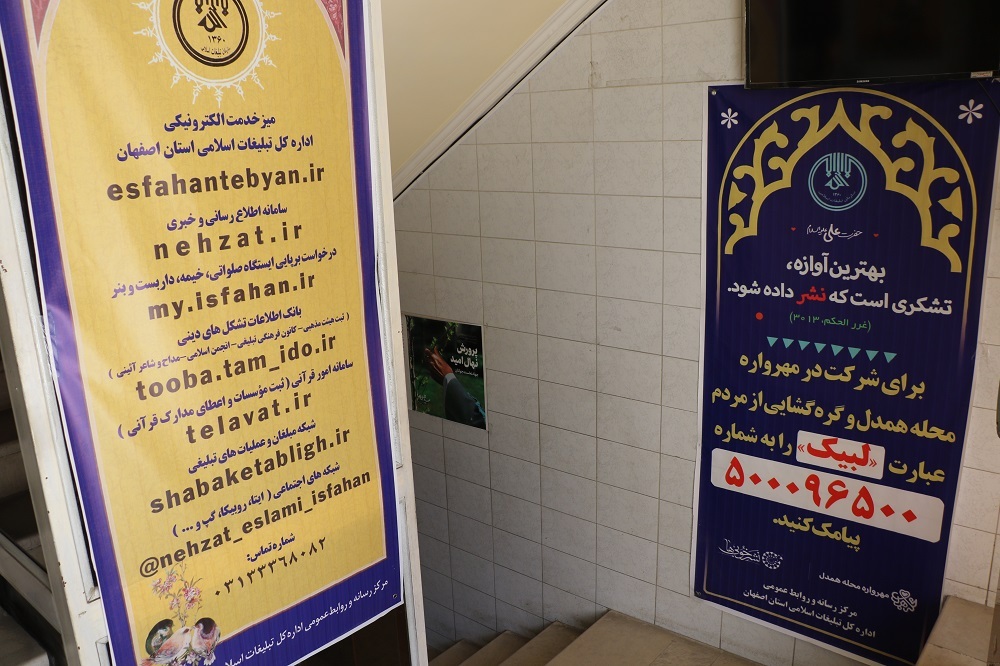 ۱۳۶۰
سازمان تبلیغات اسلامی
میز خدمت الکترونیکی
اداره کل تبلیغات اسلامی استان اصفهان
esfahantebyan.ir
سامانه اطلاع رسانی و خبری
nehzat.ir
درخواست برپایی ایستگاه صلواتی، خیمه، داربست و بنر
my.isfahan.ir
بانک اطلاعات تشکل های دینی
( ثبت هیئت مذهبی- کانون فرهنگی تبلیغی- انجمن اسلامی-مداح و شاعر آئینی )
tooba.tam_ido.ir
سامانه امور قرآنی ( ثبت مؤسسات و اعطای مدارک قرآنی )
telavat.ir
شبکه مبلغان و عملیات های تبلیغی
shabaketabligh.ir
شبکه های اجتماعی ( ایتا، روبیکا، گپ و ... )
@nehzat_eslami_isfahan
شماره تماس:
۰۳۱۳۳۳۶۸۰۸۲
مرکز رسانه و روابط عمومی اداره کل تبلیغات اسلا
پرورش
نهال امید
۱۳۶۰
حضرت علی علیه السلام
بهترین آوازه،
تشکری است که نشر داده شود.
(غرر الحکم، ۳۰۱۳)
برای شرکت در مهرواره
محله همدل و گره گشایی از مردم
عبارت «لبیک» را به شماره
۵۰۰۰۹۶۵۰۰
پیامک کنید.
نشر خوبی‌ها
مهرواره محله همدل
مرکز رسانه و روابط عمومی
اداره کل تبلیغات اسلامی استان اصفهان